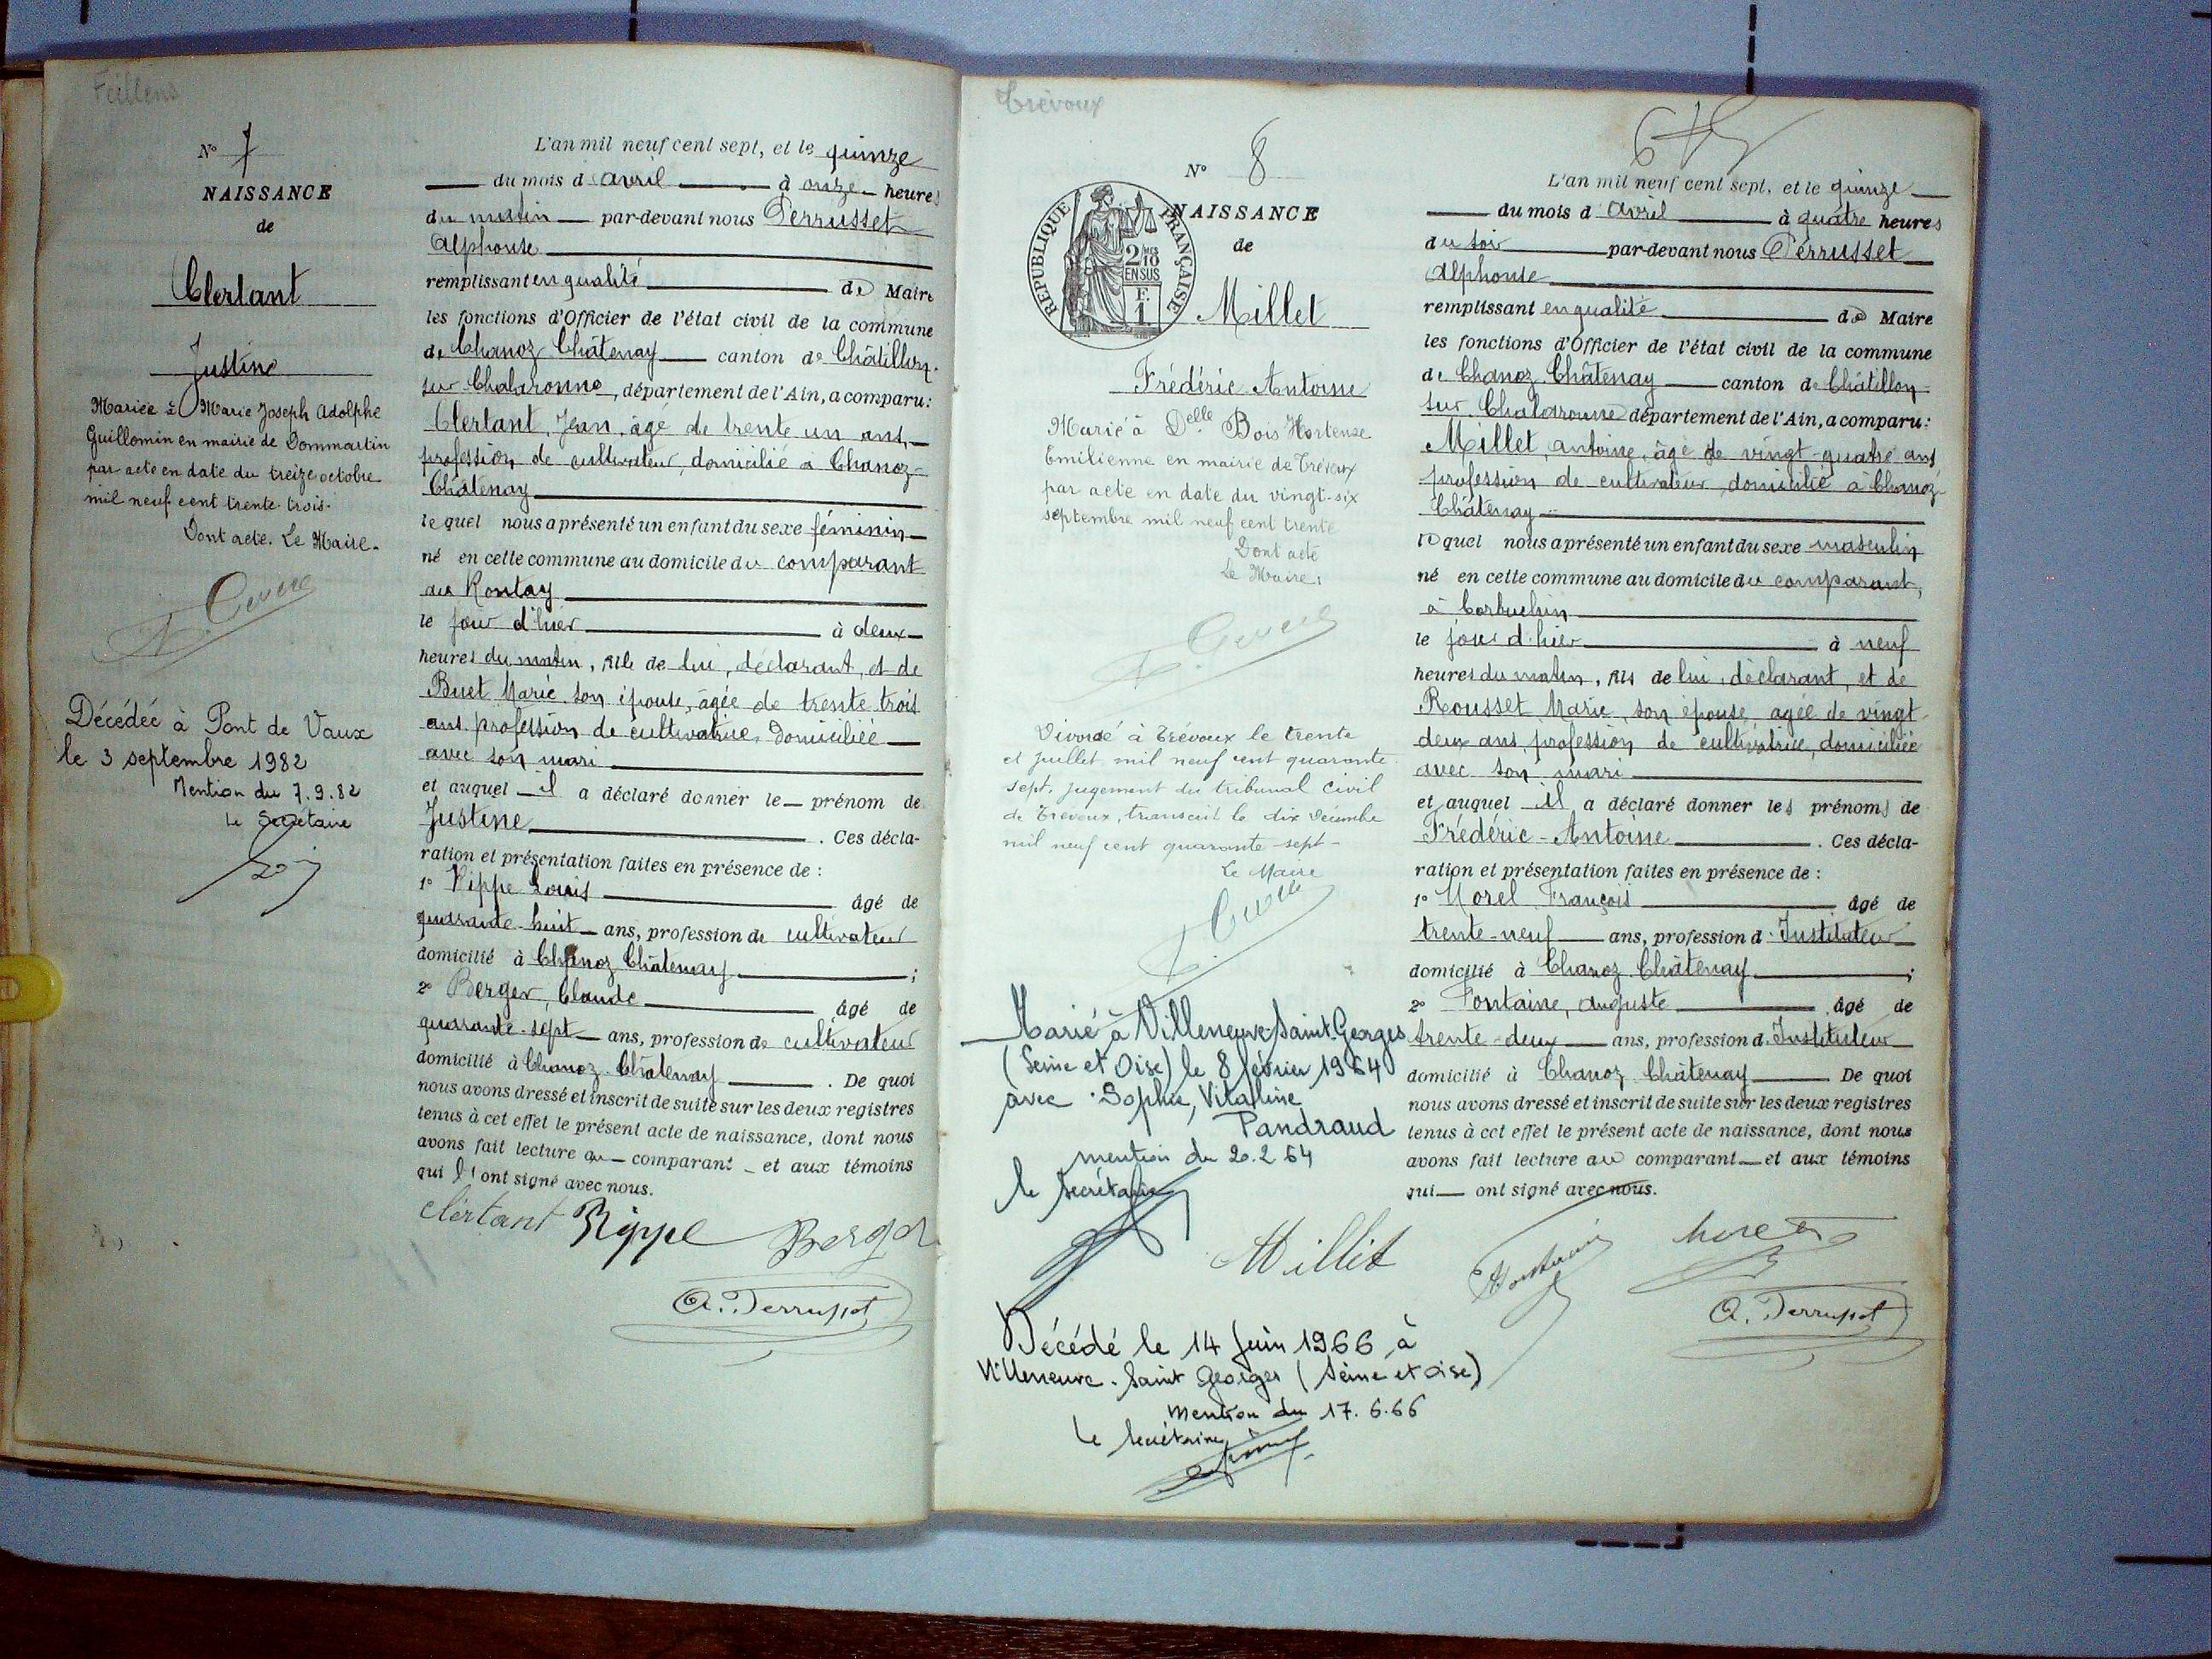 Feillens
N° 7
NAISSANCE
de
Clertant
Justine
Mariée à Marie Joseph Adolphe
Guillomin en mairie de Dommartin
par acte en date du treize octobre
mil neuf cent trente-trois.
Dont acte. Le Maire.
Décédée à Pont de Vaux
le 3 septembre 1982
Mention du 7.9.82
Le Secrétaire
L'an mil neuf cent sept, et le quinze
du mois d'avril à onze heures
du matin par-devant nous Perrusset
Alphonse
remplissant en qualité de Maire
les fonctions d'Officier de l'état civil de la commune
de Chanoz Châtenay canton de Châtillon-
sur Chalaronne, département de l'Ain, a comparu:
Clertant, Jean, âgé de trente un ans,
profession de cultivateur, domicilié à Chanoz-
Châtenay
lequel nous a présenté un enfant du sexe féminin
né en cette commune au domicile du comparant
au Rontay
le jour d'hier à deux
heures du matin, fille de lui, déclarant, et de
Buet Marie son épouse, âgée de trente trois
ans, profession de cultivatrice, domiciliée
avec son mari
et auquel il a déclaré donner le prénom de
Justine. Ces décla-
ration et présentation faites en présence de :
1° Rippe Louis âgé de
quarante-huit ans, profession de cultivateur
domicilié à Chanoz Châtenay ;
2° Berger, Claude âgé de
quarante-sept ans, profession de cultivateur
domicilié à Chanoz-Châtenay. De quoi
nous avons dressé et inscrit de suite sur les deux registres
tenus à cet effet le présent acte de naissance, dont nous
avons fait lecture au comparant et aux témoins
qui l'ont signé avec nous.
Clertant Rippe Berger
A. Perrusset
Trévoux
N° 8
NAISSANCE
de
RÉPUBLIQUE FRANÇAISE
2/10 EN SUS
F. 1
Millet
Frédéric Antoine
Marié à Delle Bois Hortense
Emilienne en mairie de Trévoux
par acte en date du vingt-six
septembre mil neuf cent trente
Dont acte
Le Maire,
Divorcé à Trévoux le trente
et juillet mil neuf cent quarante
sept, jugement du tribunal civil
de Trévoux, transcrit le dix décembre
mil neuf cent quarante-sept-
Le Maire
Marié à Villeneuve-Saint-Georges
(Seine et Oise) le 8 février 1964
avec Sophie, Vitaline
Pandraud
mention du 20.2.64
le Secrétaire
Décédé le 14 Juin 1966 à
Villeneuve-Saint Georges (Seine et Oise)
Mention du 17.6.66
Le Secrétaire
L'an mil neuf cent sept, et le quinze
du mois d'avril à quatre heures
du soir par-devant nous Perrusset
Alphonse
remplissant en qualité de Maire
les fonctions d'Officier de l'état civil de la commune
de Chanoz Châtenay canton de Châtillon
sur Chalaronne département de l'Ain, a comparu:
Millet, Antoine, âgé de vingt-quatre ans
profession de cultivateur, domicilié à Chanoz
Châtenay
lequel nous a présenté un enfant du sexe masculin
né en cette commune au domicile du comparant,
à Corbuchin
le jour d'hier à neuf
heures du matin, fils de lui, déclarant, et de
Rousset Marie, son épouse, âgée de vingt
deux ans, profession de cultivatrice, domiciliée
avec son mari
et auquel il a déclaré donner les prénoms de
Frédéric-Antoine. Ces décla-
ration et présentation faites en présence de :
1° Morel François âgé de
trente-neuf ans, profession d'Instituteur
domicilié à Chanoz Châtenay ;
2° Fontaine, Auguste âgé de
trente-deux ans, profession d'Instituteur
domicilié à Chanoz Châtenay De quoi
nous avons dressé et inscrit de suite sur les deux registres
tenus à cet effet le présent acte de naissance, dont nous
avons fait lecture au comparant et aux témoins
qui ont signé avec nous.
Millet Fontaine Morel
A. Perrusset